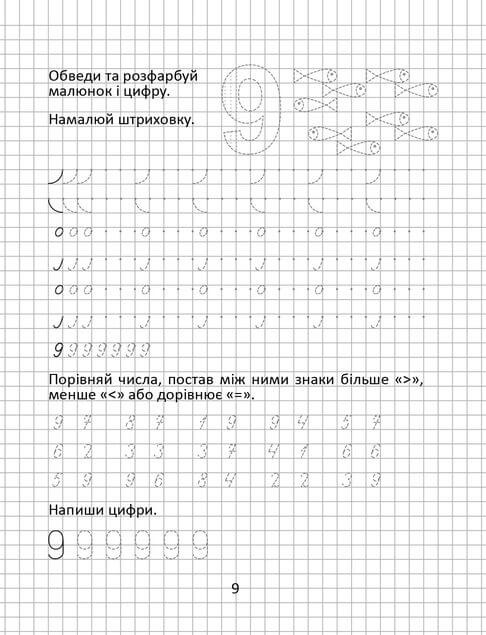 Обведи та розфарбуй
малюнок і цифру.
9
Намалюй штриховку.
o o o o o o o o
o o o o o o o o
9 9 9 9 9 9 9
Порівняй числа, постав між ними знаки більше «>»,
менше «<» або дорівнює «=».
9 7 8 7 1 9 9 4 5 7
6 2 3 3 3 7 4 1 6 6
5 9 9 6 8 4 2 2 3 9
Напиши цифри.
9 9 9 9 9 9
9